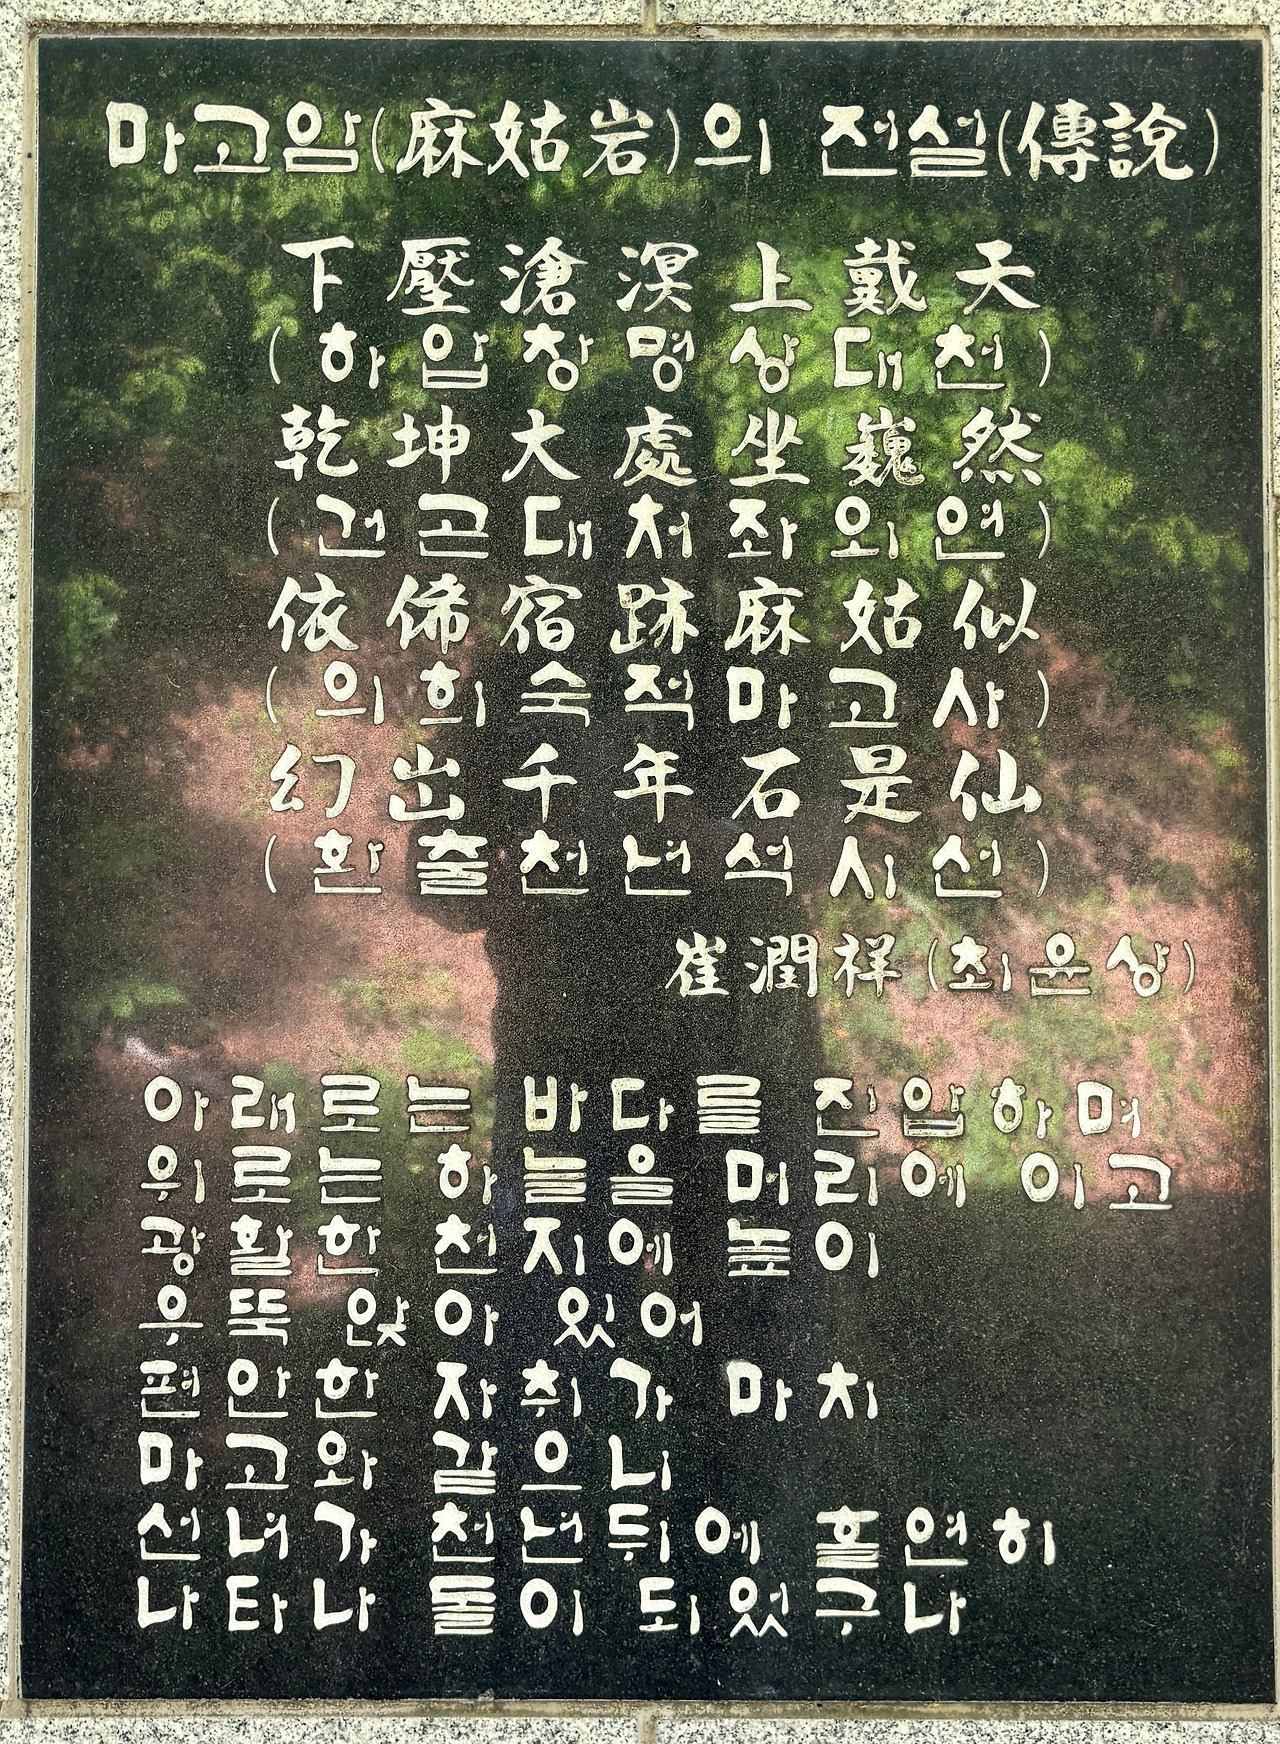 마고암(麻姑岩)의 전설(傳說)
下壓滄溟上戴天
(하압창명상대천)
乾坤大處坐巍然
(건곤대처좌외연)
依俙宿跡麻姑似
(의희숙적마고사)
幻出千年石是仙
(환출천년석시선)
崔潤祥(최윤상)
아래로는 바다를 진압하며
위로는 하늘을 머리에 이고
광활한 천지에 높이
우뚝 앉아 있어
편안한 자취가 마치
마고와 같으니
선녀가 천년뒤에 홀연히
나타나 돌이 되었구나